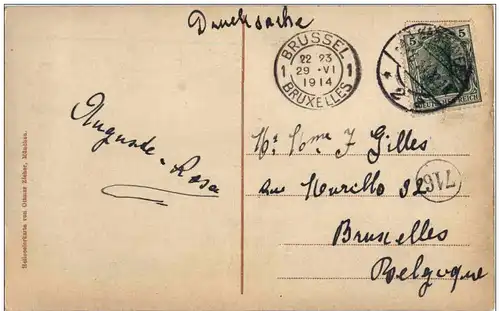 Drucksache
BRÜSSEL
1 22 23 1
29 · VI
1914
BRUXELLES
5 5
DEUTSCHES REICH
Auguste-Rosa
Mr J Gilles
Rue Murillo 32
716
Bruxelles
Belgique
Heliocolorkarte von Ottmar Zieher, München.